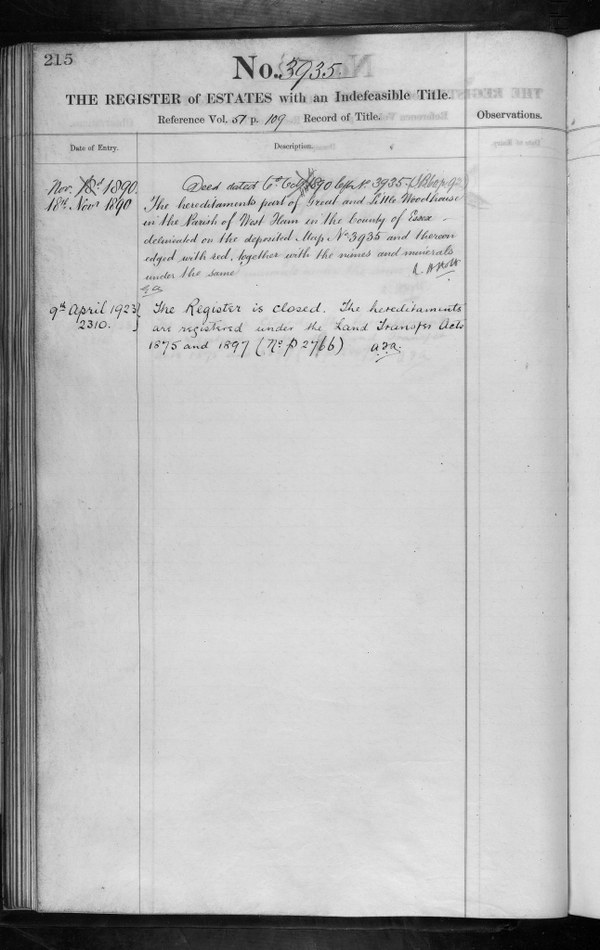 215
No. 3935
THE REGISTER of ESTATES with an Indefeasible Title.
Reference Vol. 51 p. 109 Record of Title.
Observations.
Date of Entry.
Description.
Nov. 1890.
Deed dated 6th 1890 No. 3935
18th Novr 1890
The hereditaments part of Great and Little Woodhouse
in the Parish of West Ham in the County of Essex
delineated on the deposited Map No 3935 and thereon
edged with red, together with the mines and minerals
under the same
9th April 1923
2310.
The Register is closed. The hereditaments
are registered under the Land Transfer Acts
1875 and 1897 (No. P 2766)